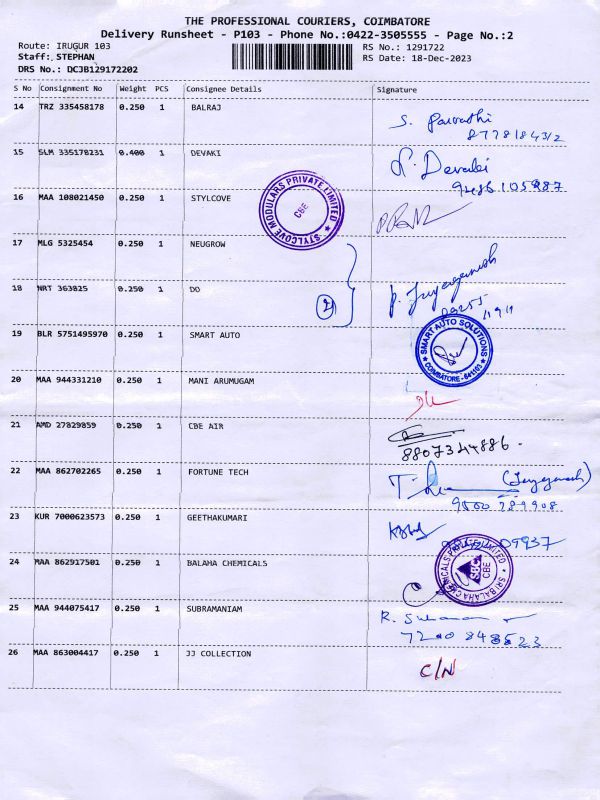 THE PROFESSIONAL COURIERS, COIMBATORE
Delivery Runsheet - P103 - Phone No.:0422-3505555 - Page No.:2
Route: IRUGUR 103 RS No.: 1291722
Staff: STEPHAN RS Date: 18-Dec-2023
DRS No.: DCJB129172202
S No Consignment No Weight PCS Consignee Details Signature
14 TRZ 335458178 0.250 1 BALRAJ
S. Parvathi
8778184312
15 SLM 335178231 0.400 1 DEVAKI
Devaki
9486105987
16 MAA 108021450 0.250 1 STYLCOVE
STYLCOVE MODULARS PRIVATE LIMITED
CBE
17 MLG 5325454 0.250 1 NEUGROW
18 NRT 363825 0.250 1 DO
2
P. Jayaganesh
19 BLR 5751495970 0.250 1 SMART AUTO
SMART AUTO SOLUTIONS
COIMBATORE - 641103
20 MAA 944331210 0.250 1 MANI ARUMUGAM
21 AMD 27829859 0.250 1 CBE AIR
8807344886
22 MAA 862702265 0.250 1 FORTUNE TECH
(Jayaganesh)
9500 789908
23 KUR 7000623573 0.250 1 GEETHAKUMARI
09937
24 MAA 862917501 0.250 1 BALAHA CHEMICALS
SRI BALAHA CHEMICALS PRIVATE LIMITED
CBE
25 MAA 944075417 0.250 1 SUBRAMANIAM
R.
26 MAA 863004417 0.250 1 JJ COLLECTION
C/N